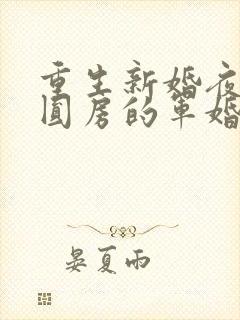 重生新婚夜
圆房的军婚
晏夏雨